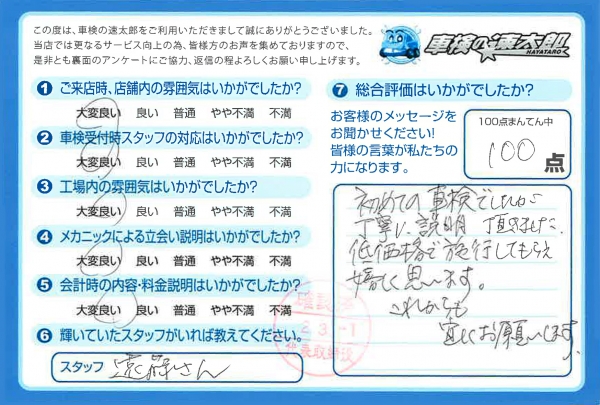 この度は、車検の速太郎をご利用いただきまして誠にありがとうございました。
当店では更なるサービス向上の為、皆様方のお声を集めておりますので、
是非とも裏面のアンケートにご協力、返信の程よろしくお願い申し上げます。
車検の速太郎
HAYATARO
1 ご来店時、店舗内の雰囲気はいかがでしたか?
大変良い 良い 普通 やや不満 不満
2 車検受付時スタッフの対応はいかがでしたか?
大変良い 良い 普通 やや不満 不満
3 工場内の雰囲気はいかがでしたか?
大変良い 良い 普通 やや不満 不満
4 メカニックによる立会い説明はいかがでしたか?
大変良い 良い 普通 やや不満 不満
5 会計時の内容・料金説明はいかがでしたか?
大変良い 良い 普通 やや不満 不満
6 輝いていたスタッフがいれば教えてください。
スタッフ 遠藤さん
7 総合評価はいかがでしたか?
お客様のメッセージを
お聞かせください!
皆様の言葉が私たちの
力になります。
100点まんてん中
100 点
初めての車検でしたが
丁寧に説明頂けました。
低価格で施行してもらえ
嬉しく思います。
これからも
宜しくお願いします。
確認済
23.-1
代表取締役